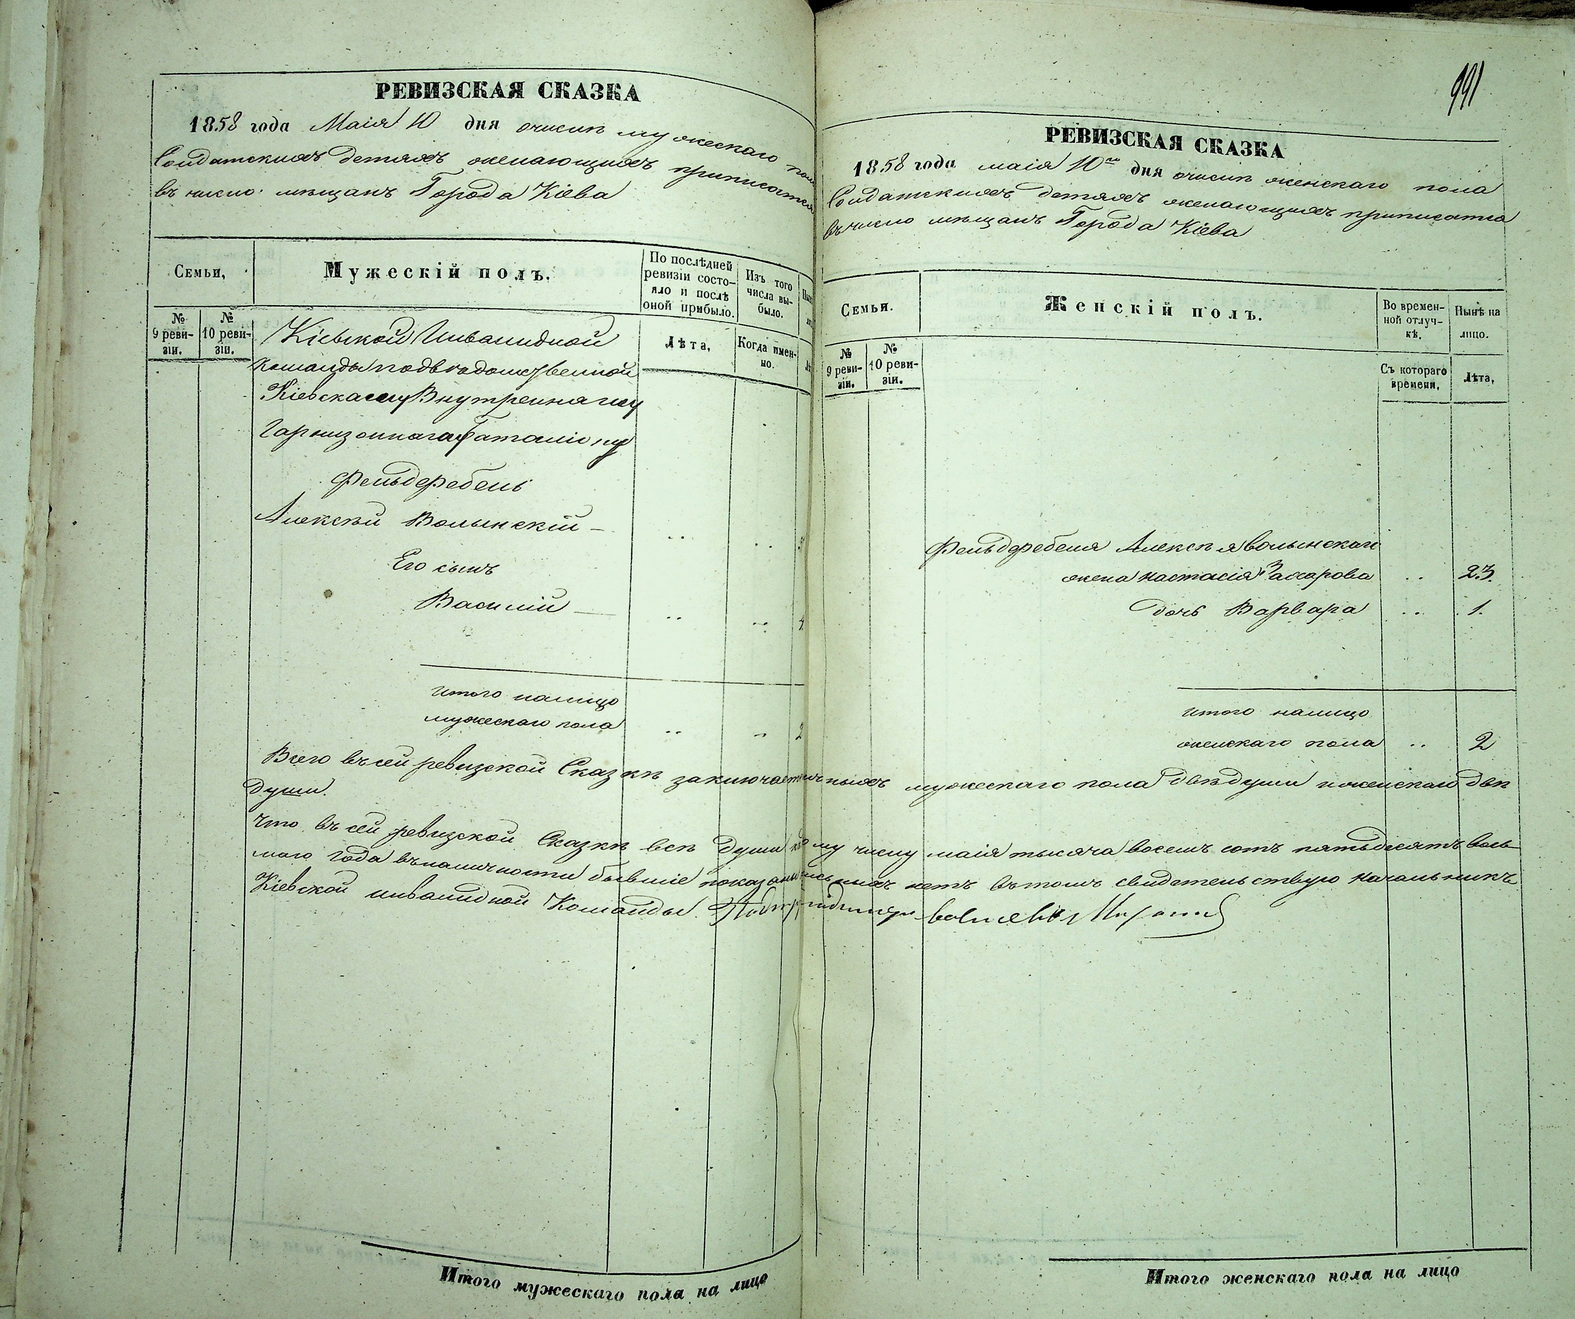 РЕВИЗСКАЯ СКАЗКА
1858 года Маія 10 дня о числѣ мужескаго пола
Солдатскихъ детяхъ желающихъ приписатся
въ число мѣщанъ Города Кіева
Семьи,
Мужескій полъ.
По послѣдней ревизіи состояло и послѣ оной прибыло.
Изъ того числа выбыло.
№ 9 ревизіи.
№ 10 ревизіи.
Лѣта,
Когда именно.
Кіевской Инвалидной
Команды подведомственной
Кіевскаму Внутреннаму
Гарнизоннаму баталіону
Фельдфебель
Алексѣй Волынскій
Его сынъ
Василій
Итого налицо
мужескаго пола
2
991
РЕВИЗСКАЯ СКАЗКА
1858 года маія 10го дня о числѣ женскаго пола
Солдатскихъ детяхъ желающихъ приписатся
въ число мѣщанъ Города Кіева
Семьи.
Женскій полъ.
Во временной отлучкѣ,
Нынѣ на лицо.
№ 9 ревизіи.
№ 10 ревизіи.
Съ котораго времени,
Лѣта,
Фельдфебеля Алексѣя Волынскаго
жена Настасія Захарова 23.
дочь Варвара 1.
Итого налицо
женскаго пола 2
Всего въ сей ревизской Сказкѣ заключается мужескаго пола двѣ души и женскаго двѣ
души.
Что въ сей ревизской Сказкѣ все души къ му числу маія тысяча восемь сотъ пятьдесятъ вось
маго года въ наличности бывшіе показаны нетъ въ томъ свидѣтельствую Начальникъ
Кіевской инвалидной Команды
Итого мужескаго пола на лицо
Итого женскаго пола на лицо